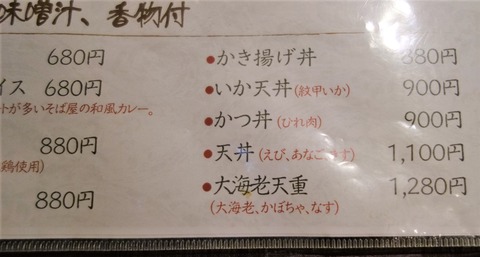 味噌汁、香物付
680円
イス 680円
トが多いそば屋の和風カレー。
880円
鶏使用)
880円
•かき揚げ丼 880円
•いか天丼(紋甲いか) 900円
•かつ丼(ひれ肉) 900円
•天丼(えび、あなご、なす) 1,100円
•大海老天重 1,280円
(大海老、かぼちゃ、なす)